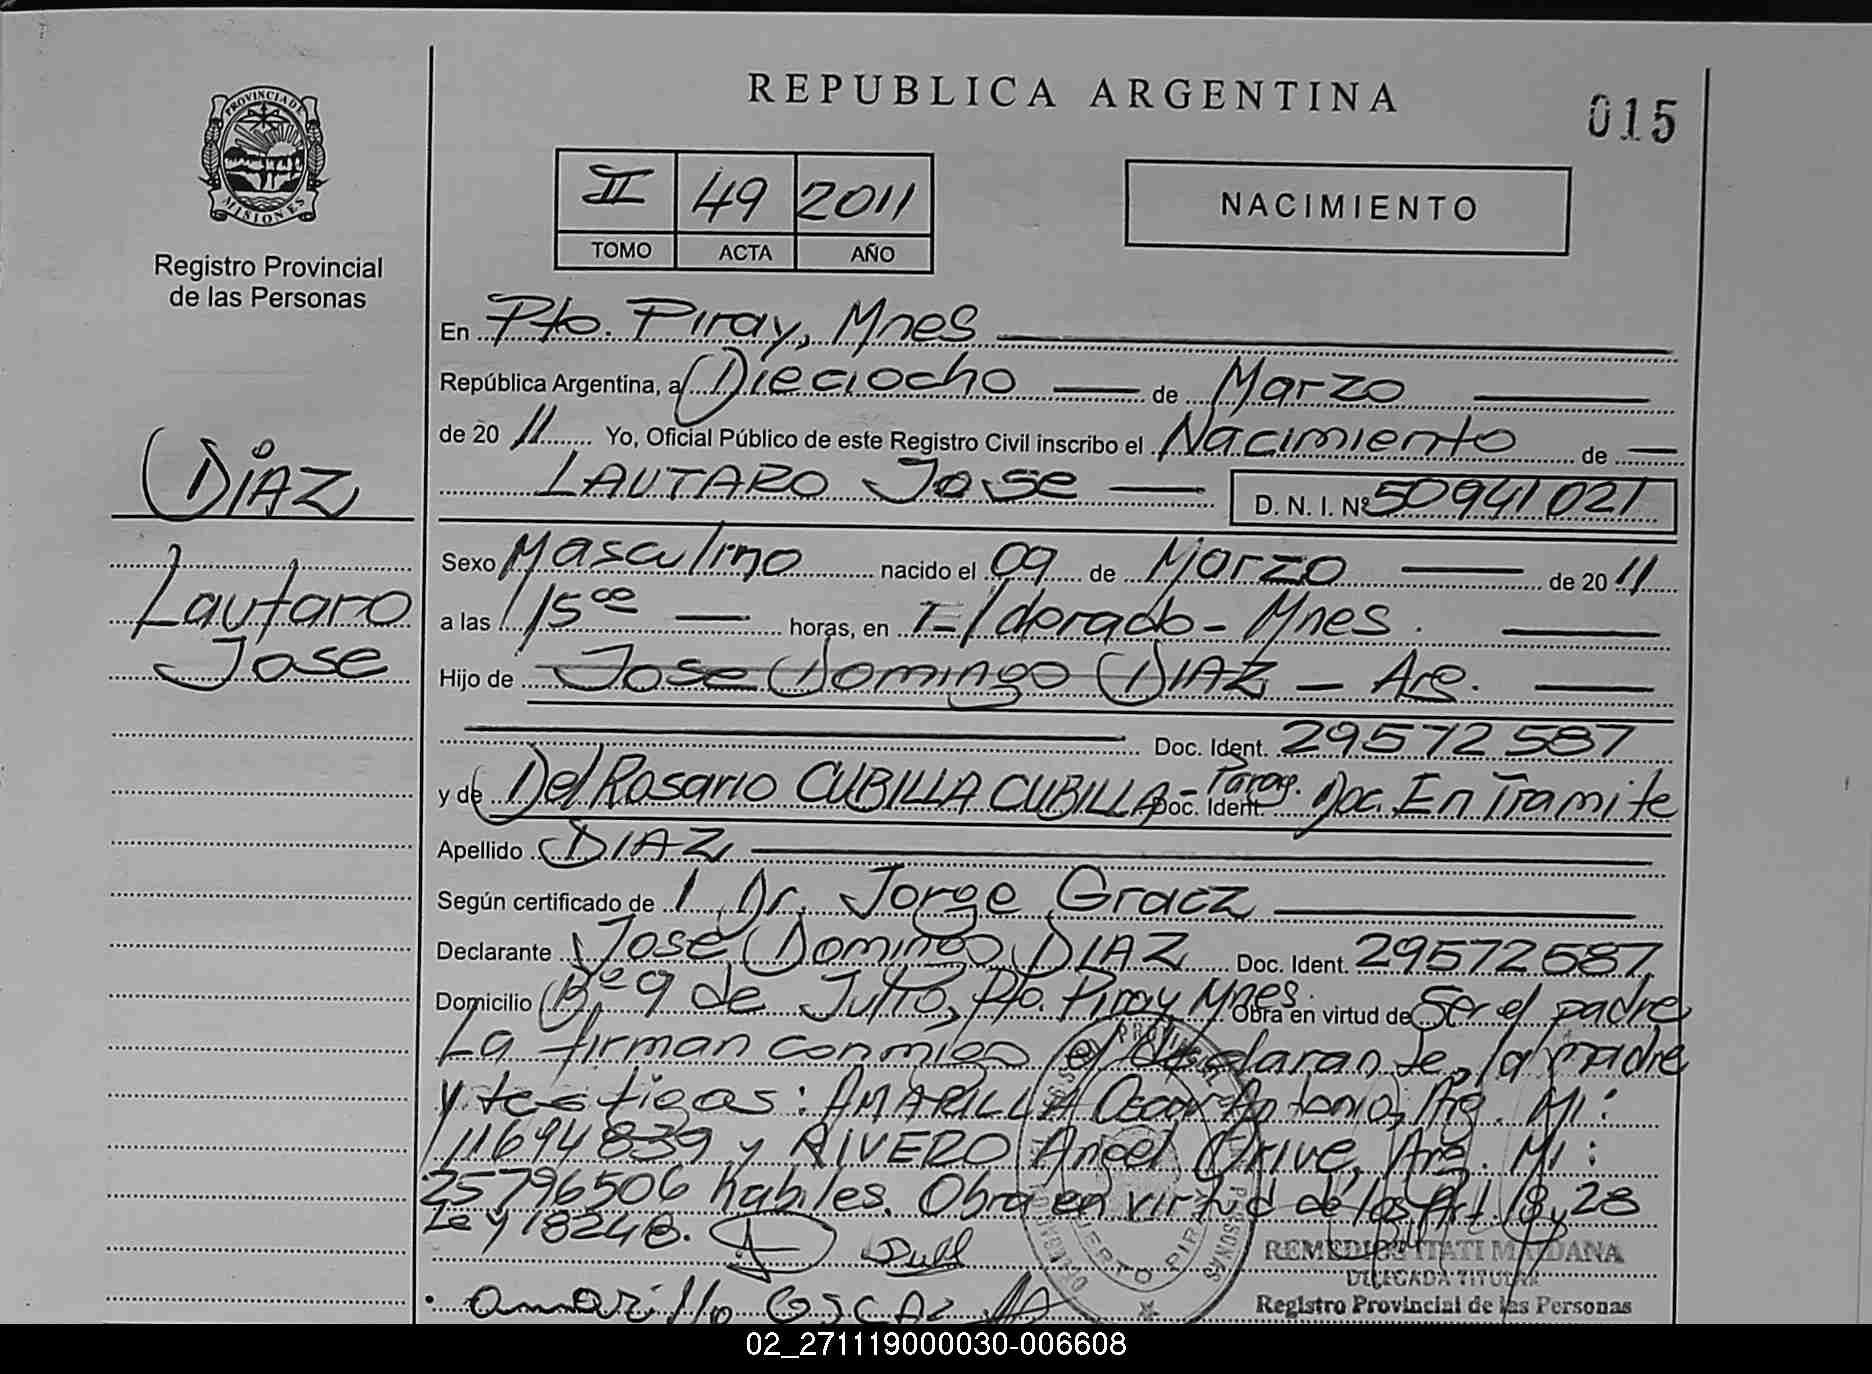 REPUBLICA ARGENTINA
015
PROVINCIA DE
MISIONES
Registro Provincial
de las Personas
II 49 2011
TOMO ACTA AÑO
NACIMIENTO
En Pto. Piray, Mnes
República Argentina, a Dieciocho de Marzo
de 20 11 Yo, Oficial Público de este Registro Civil inscribo el Nacimiento de
LAUTARO Jose D. N. I. Nº 50941021
DIAZ
Lautaro
Jose
Sexo Masculino nacido el 09 de Marzo de 20 11
a las 15 horas, en Eldorado - Mnes.
Hijo de Jose Domingo DIAZ - Arg.
Doc. Ident. 29572587
y de Del Rosario CUBILLA CUBILLA - Parag. Doc. Ident. Doc. En Tramite
Apellido DIAZ
Según certificado de Dr. Jorge Gracz
Declarante Jose Domingo DIAZ Doc. Ident. 29572587
Domicilio Bº 9 de Julio, Pto. Piray Mnes. Obra en virtud de Ser el padre
La firman conmigo el declarante, la madre
y testigos: AMARILLA Oscar Antonio, Arg. MI:
11694839 y RIVERO Angel Orive, Arg. MI:
25796506 habiles. Obra en virtud de los Art. 18 y 28
Ley 18248.
PUERTO PIRAY
REMEDIOS ITATI MAIDANA
DELEGADA TITULAR
Registro Provincial de las Personas
02_271119000030-006608